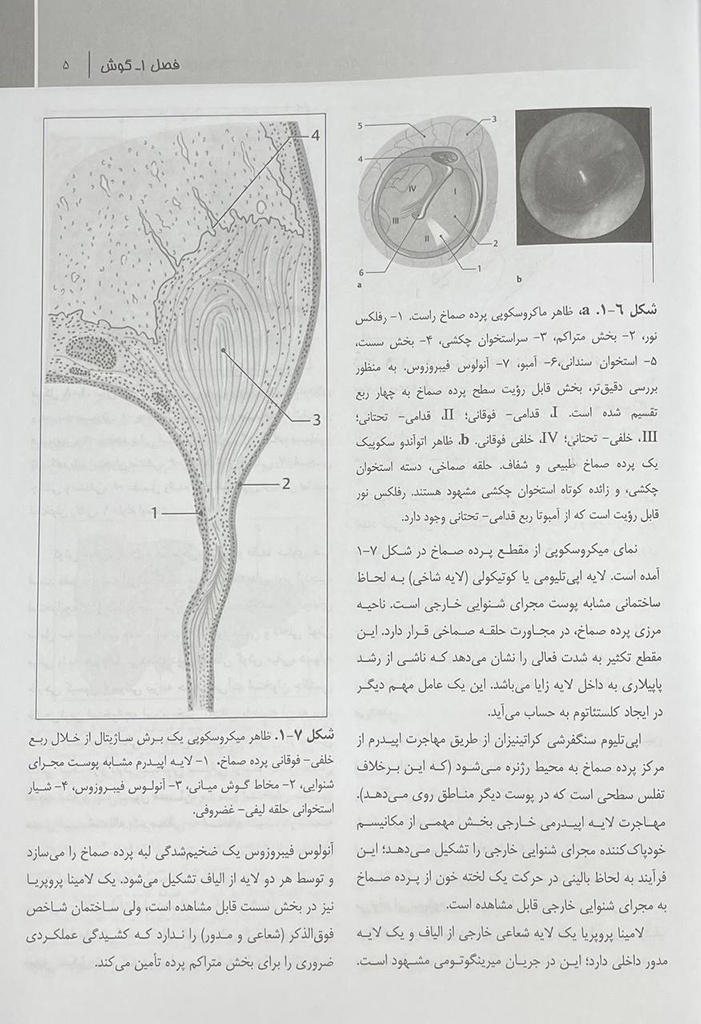 فصل ۱ـ گوش
۵
5
3
4
IV
I
III
II
2
6
1
a
b
شکل ۶-۱. a، ظاهر ماکروسکوپی پرده صماخ راست. ۱- رفلکس
نور، ۲- بخش متراکم، ۳- سراستخوان چکشی، ۴- بخش سست،
۵- استخوان سندانی،۶- آمبو، ۷- آنولوس فیبروزوس. به منظور
بررسی دقیق‌تر، بخش قابل رؤیت سطح پرده صماخ به چهار ربع
تقسیم شده است. I، قدامی- فوقانی؛ II، قدامی- تحتانی؛
III، خلفی- تحتانی؛ IV، خلفی فوقانی. b، ظاهر اتوآندو سکوپیک
یک پرده صماخ طبیعی و شفاف. حلقه صماخی، دسته استخوان
چکشی، و زائده کوتاه استخوان چکشی مشهود هستند. رفلکس نور
قابل رؤیت است که از آمبوتا ربع قدامی- تحتانی وجود دارد.
نمای میکروسکوپی از مقطع پرده صماخ در شکل ۷-۱
آمده است. لایه اپی‌تلیومی یا کوتیکولی (لایه شاخی) به لحاظ
ساختمانی مشابه پوست مجرای شنوایی خارجی است. ناحیه
مرزی پرده صماخ، در مجاورت حلقه صماخی قرار دارد. این
مقطع تکثیر به شدت فعالی را نشان می‌دهد که ناشی از رشد
پاپیلاری به داخل لایه زایا می‌باشد. این یک عامل مهم دیگر
در ایجاد کلستئاتوم به حساب می‌آید.
اپی‌تلیوم سنگفرشی کراتینیزان از طریق مهاجرت اپیدرم از
مرکز پرده صماخ به محیط رژنره می‌شود (که این برخلاف
تفلس سطحی است که در پوست دیگر مناطق روی می‌دهد).
مهاجرت لایه اپیدرمی خارجی بخش مهمی از مکانیسم
خودپاک‌کننده مجرای شنوایی خارجی را تشکیل می‌دهد؛ این
فرآیند به لحاظ بالینی در حرکت یک لخته خون از پرده صماخ
به مجرای شنوایی خارجی قابل مشاهده است.
لامینا پروپریا یک لایه شعاعی خارجی از الیاف و یک لایه
مدور داخلی دارد؛ این در جریان میرینگوتومی مشهود است.
4
3
2
1
شکل ۷-۱. ظاهر میکروسکوپی یک برش ساژیتال از خلال ربع
خلفی- فوقانی پرده صماخ. ۱- لایه اپیدرم مشابه پوست مجرای
شنوایی، ۲- مخاط گوش میانی، ۳- آنولوس فیبروزوس، ۴- شیار
استخوانی حلقه لیفی- غضروفی.
آنولوس فیبروزوس یک ضخیم‌شدگی لبه پرده صماخ را می‌سازد
و توسط هر دو لایه از الیاف تشکیل می‌شود. یک لامینا پروپریا
نیز در بخش سست قابل مشاهده است، ولی ساختمان شاخص
فوق‌الذکر (شعاعی و مدور) را ندارد که کشیدگی عملکردی
ضروری را برای بخش متراکم پرده تأمین می‌کند.